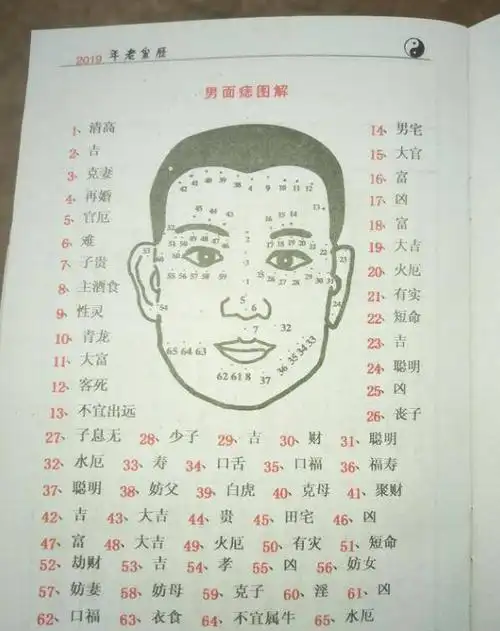 2019 年老皇历
男面痣图解
1、清高
2、吉
3、克妻
4、再婚
5、官厄
6、难
7、子贵
8、主酒食
9、性灵
10、青龙
11、大富
12、客死
13、不宜出远
14、男宅
15、大官
16、富
17、凶
18、富
19、大吉
20、火厄
21、有实
22、短命
23、吉
24、聪明
25、凶
26、丧子
27、子息无 28、少子 29、吉 30、财 31、聪明
32、水厄 33、寿 34、口舌 35、口福 36、福寿
37、聪明 38、妨父 39、白虎 40、克母 41、聚财
42、吉 43、大吉 44、贵 45、田宅 46、凶
47、富 48、大吉 49、火厄 50、有灾 51、短命
52、劫财 53、吉 54、孝 55、凶 56、妨女
57、妨妻 58、妨母 59、克子 60、淫 61、凶
62、口福 63、衣食 64、不宜属牛 65、水厄